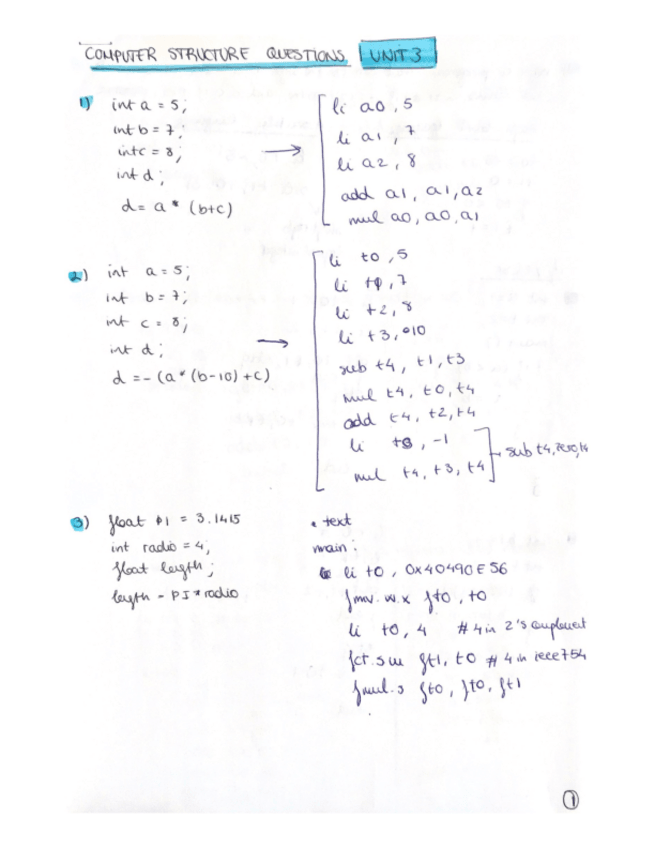 COMPUTER STRUCTURE QUESTIONS UNIT 3
1) int a = 5;
int b = 7;
int c = 8;
int d;
d = a * (b+c)
li a0, 5
li a1, 7
li a2, 8
add a1, a1, a2
mul a0, a0, a1
2) int a = 5;
int b = 7;
int c = 8;
int d;
d = - (a * (b-10) + c)
li t0, 5
li t1, 7
li t2, 8
li t3, 10
sub t4, t1, t3
mul t4, t0, t4
add t4, t2, t4
li t3, -1
mul t4, t3, t4
sub t4, zero, t4
3) float PI = 3.1415
int radio = 4;
float length;
length = PI * radio
.text
main:
li t0, 0x40490E56
fmv.w.x ft0, t0
li t0, 4 # 4 in 2's complement
fct.s.w ft1, t0 # 4 in ieee754
fmul.s ft0, ft0, ft1
1